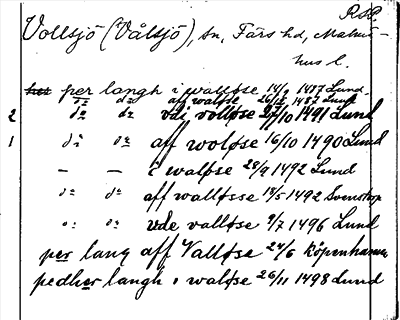 R.s.P.
Vollsjö (Vålsjö), sn, Färs hd, Malmö-
hus l.
her per langh i walløse 14/9 1487 Lund.
dº dº aff waløse 26/12 1487 Lund
2 dº dº vdi volløse 27/10 1491 Lund
1 dº dº aff woløse 16/10 1490 Lund
— — i waløse 28/9 1492 Lund
dº dº aff walløsse 18/5 1492 Svenstrop
dº dº vde valløse 9/7 1496 Lund
per lang aff Valløse 24/6 Köpenhamn
pedher langh i waløse 26/11 1498 Lund